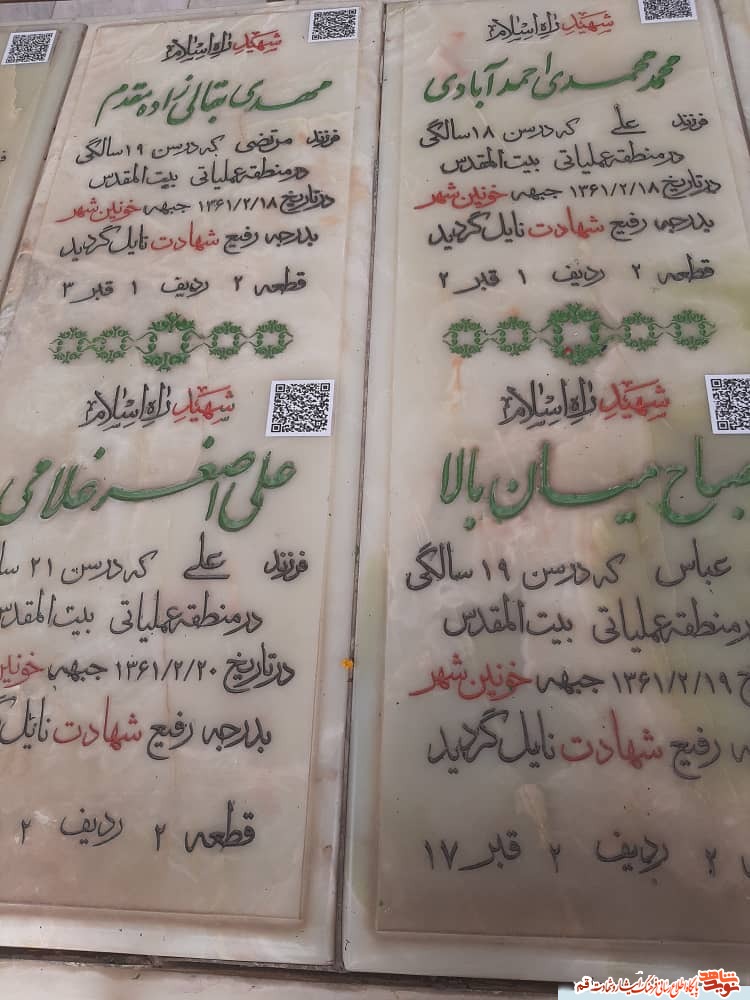 شهید راه اسلام
محمد محمدی احمدآبادی
فرزند علی که در سن ۱۸ سالگی
در منطقه عملیاتی بیت المقدس
در تاریخ ۱۳۶۱/۲/۱۸ جبهه خونین شهر
بدرجه رفیع شهادت نایل گردید
قطعه ۲ ردیف ۱ قبر ۲
شهید راه اسلام
میان بالا
عباس که در سن ۱۹ سالگی
در منطقه عملیاتی بیت المقدس
۱۳۶۱/۲/۱۹ جبهه خونین شهر
رفیع شهادت نایل گردید
۲ ردیف ۲ قبر ۱۷
شهید راه اسلام
مهدی بقالی زاده مقدم
فرزند مرتضی که در سن ۱۹ سالگی
در منطقه عملیاتی بیت المقدس
در تاریخ ۱۳۶۱/۲/۱۸ جبهه خونین شهر
بدرجه رفیع شهادت نایل گردید
قطعه ۲ ردیف ۱ قبر ۳
شهید راه اسلام
علی اصغر غلامی
فرزند علی که در سن ۲۱
در منطقه عملیاتی بیت المقدس
در تاریخ ۱۳۶۱/۲/۲۰ جبهه
بدرجه رفیع شهادت
قطعه ۲ ردیف ۲
نوید شاهد
پایگاه اطلاع رسانی فرهنگ ایثار و شهادت قم